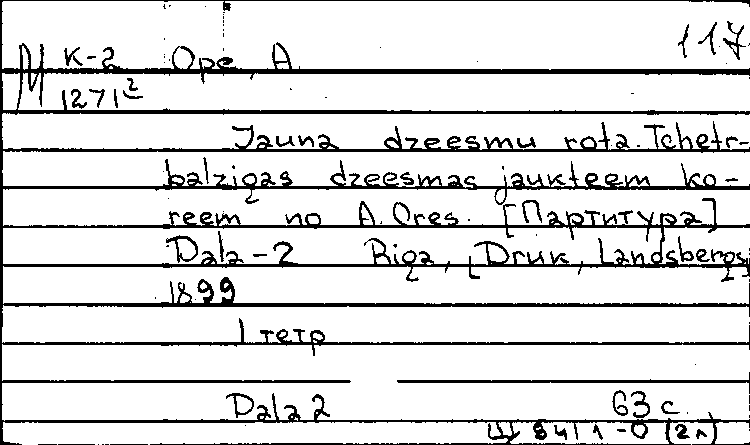 117
М К-2 Оре, А.
1271²
Jauna dzeesmu rota. Tchetr-
balzigas dzeesmas jaukteem ko-
reem no A. Ores. [Партитура]
Dala-2 Riga, [Druk, Landsbergs]
1899
1 тетр
Dala 2 63 с.
Ц 8411-0 (2л)